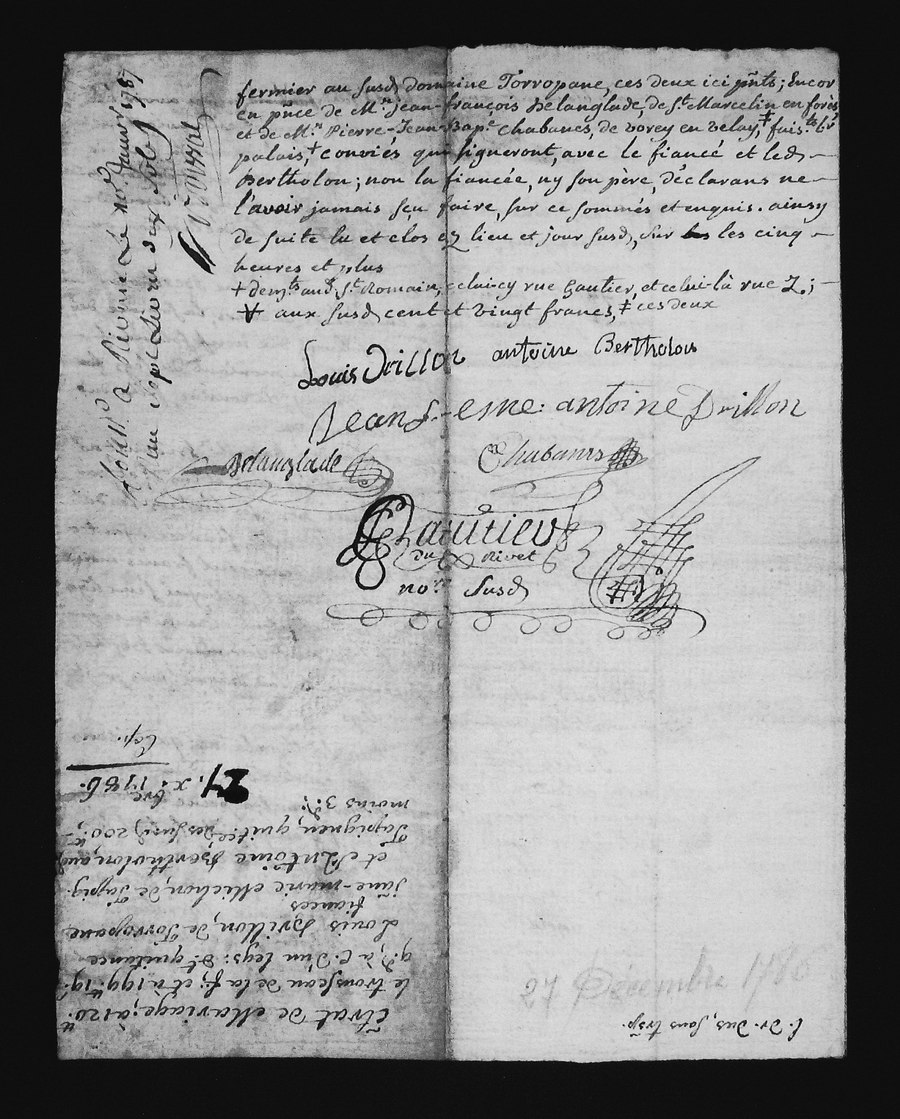 fermier au susd. domaine Torropane, ces deux ici pñts; Encor
en pñce de Mre. Jean-françois Delanglade, de St. Marcelin en forès
et de Mre. Pierre-Jean-Bapte. Chabanes, de vorey en velay,‡ fais.ts
palais,+ conviés qui signeront, avec le fiancé et led.
Bertholon; non la fiancée, ny son père, déclarans ne
l'avoir jamais sçu faire, sur ce sommés et enquis. ainsy
de suite lu et clos ez lieu et jour susd. sur les cinq
heures et plus
+ demts. aud. St. Romain, celui-cy rue Gautier, et celui-là rue Z.;
aux susd. cent et vingt francs, ‡ ces deux
Louis Drillon antoine Bertholon
Jean antoine Drillon
Delanglade Chabanes
Gautier
du Rivet
nore. susd.
Contr. à Rionne Le janvr. 1787
au Sept Livres dix Sols
Etrat de Mariage; à 120.tt
le trousseau de la f; et à 199.tt 19.s
q. à C. d'un legs: Et quitance
Louis Drillon, de Torropane,
fiancés
jñe-marie Michon, de Tapig.
et Antoine Bertholon, aud.
Tapignen, quitce. des susd. 200.tt
moins 3.d.
27. xbre. 1786.
Exp.
27 Décembre 1786